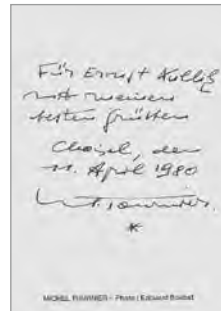 Für Ernst Kulliß
mit meinen
besten Grüßen
Choisel, den
11. April 1980
M. Tournier.
*
MICHEL TOURNIER – Photo: Edouard Boubat